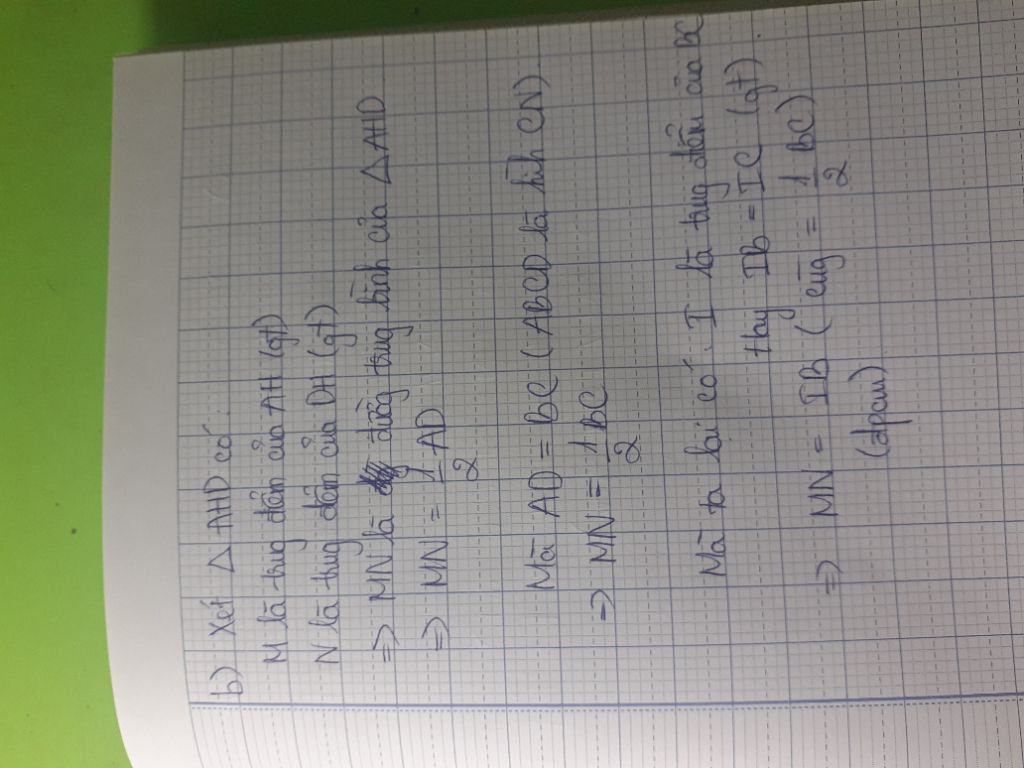 b) Xét △ AHD có:
M là trung điểm của AH (gt)
N là trung điểm của DH (gt)
=> MN là đường trung bình của △ AHD
=> MN = 1/2 AD
Mà AD = BC (ABCD là hình CN)
=> MN = 1/2 BC
Mà ta lại có: I là trung điểm của BC
Hay IB = IC (gt).
=> MN = IB (cùng = 1/2 BC)
(đpcm)